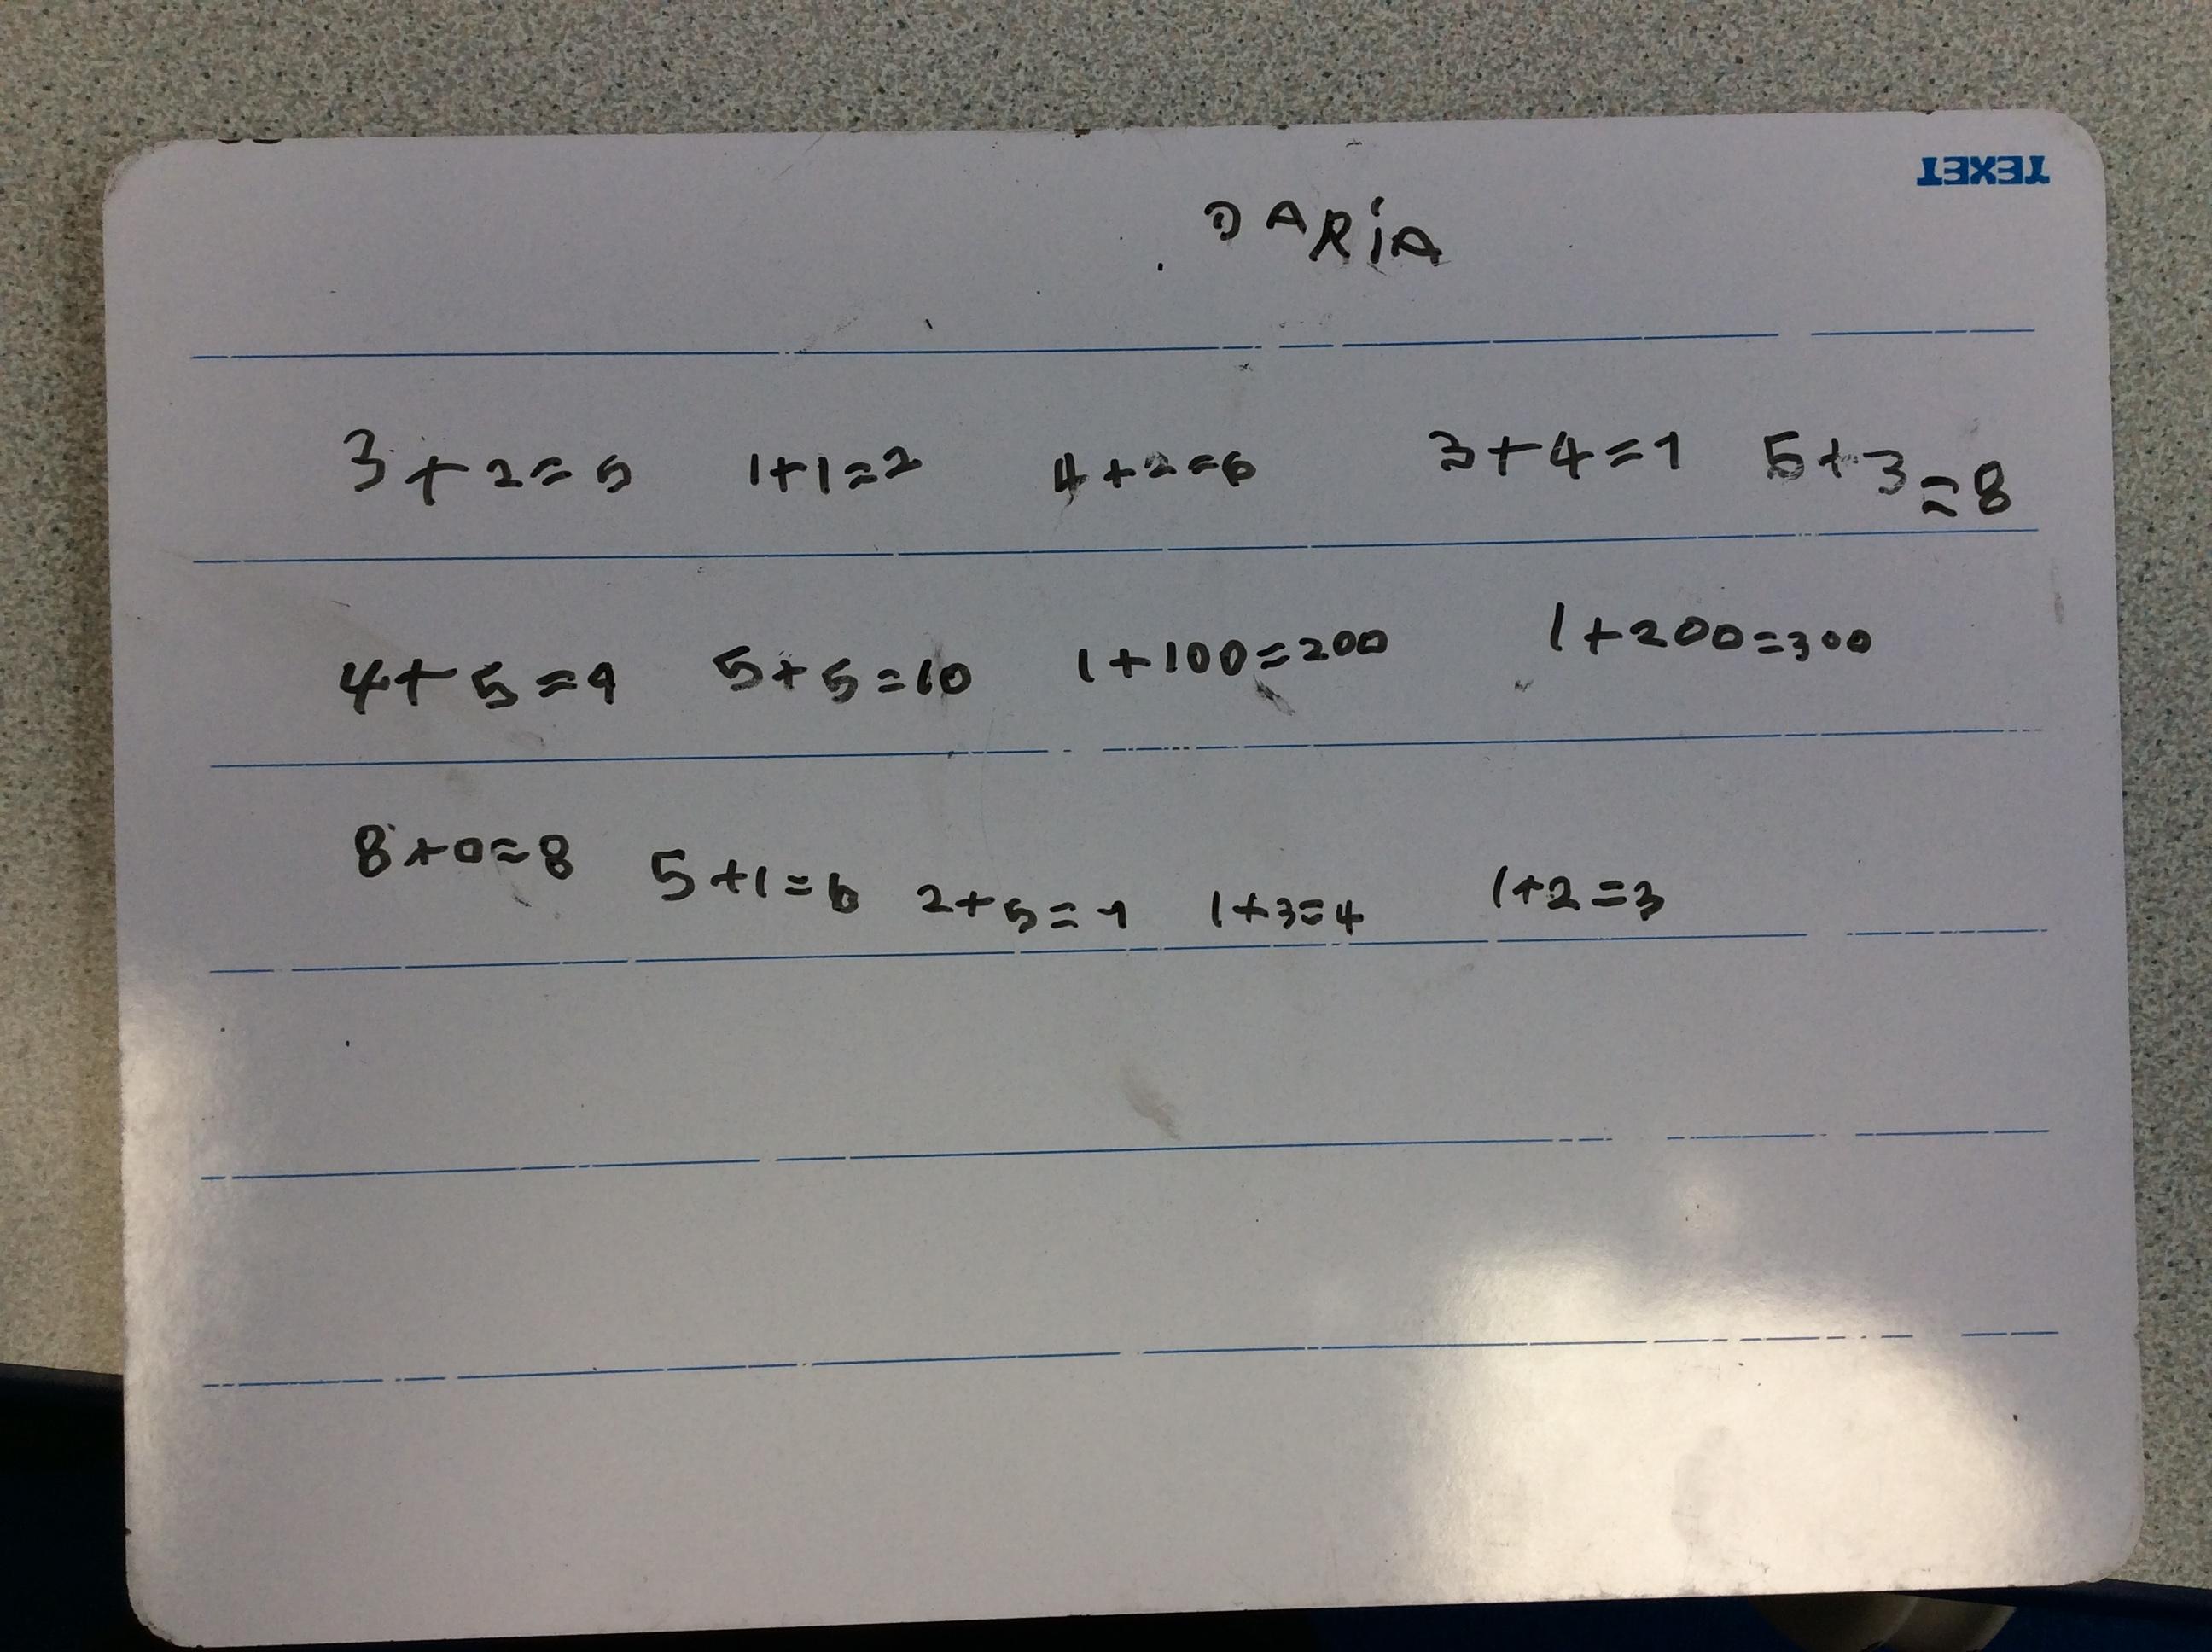 TEXET
DARiA
3+2=5 1+1=2 4+2=6 3+4=7 5+3=8
4+5=9 5+5=10 1+100=200 1+200=300
8+0=8 5+1=6 2+5=7 1+3=4 1+2=3